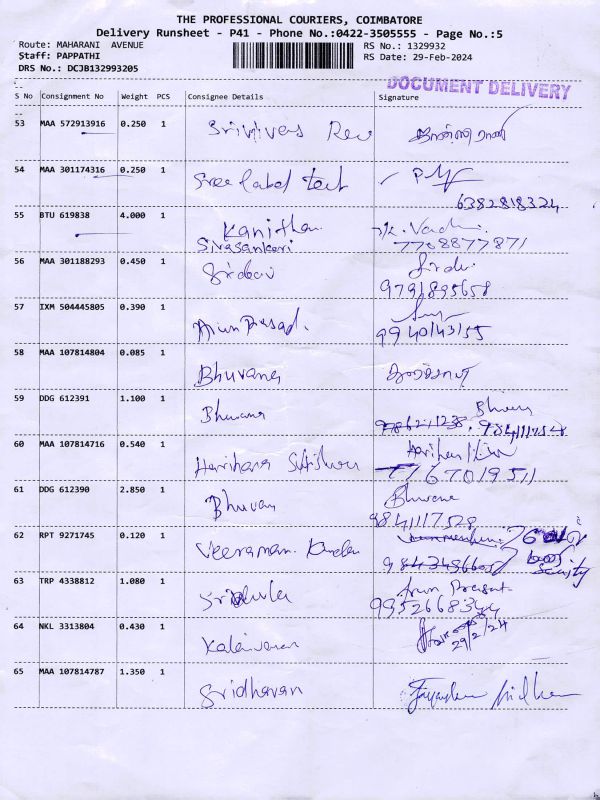 THE PROFESSIONAL COURIERS, COIMBATORE
Delivery Runsheet - P41 - Phone No.:0422-3505555 - Page No.:5
Route: MAHARANI AVENUE RS No.: 1329932
Staff: PAPPATHI RS Date: 29-Feb-2024
DRS No.: DCJB132993205
DOCUMENT DELIVERY
S No Consignment No Weight PCS Consignee Details Signature
53 MAA 572913916 0.250 1 Srinivas Rev
54 MAA 301174316 0.250 1 Sree label text
6382818324
55 BTU 619838 4.000 1 Kanitha
Sivasankari 7708877871
56 MAA 301188293 0.450 1 Sridevi
9791895658
57 IXM 504445805 0.390 1 Arun Prasad.
9940143155
58 MAA 107814804 0.085 1 Bhuvana
59 DDG 612391 1.100 1 Bhuvana
60 MAA 107814716 0.540 1 Harihara
7767019511
61 DDG 612390 2.850 1 Bhuvan Bhuvana
9841117528
62 RPT 9271745 0.120 1 Veeramani
Security
63 TRP 4338812 1.080 1 Arun Prasat
9952668344
64 NKL 3313804 0.430 1 Kalaivanan
29/2/24
65 MAA 107814787 1.350 1 Sridharan